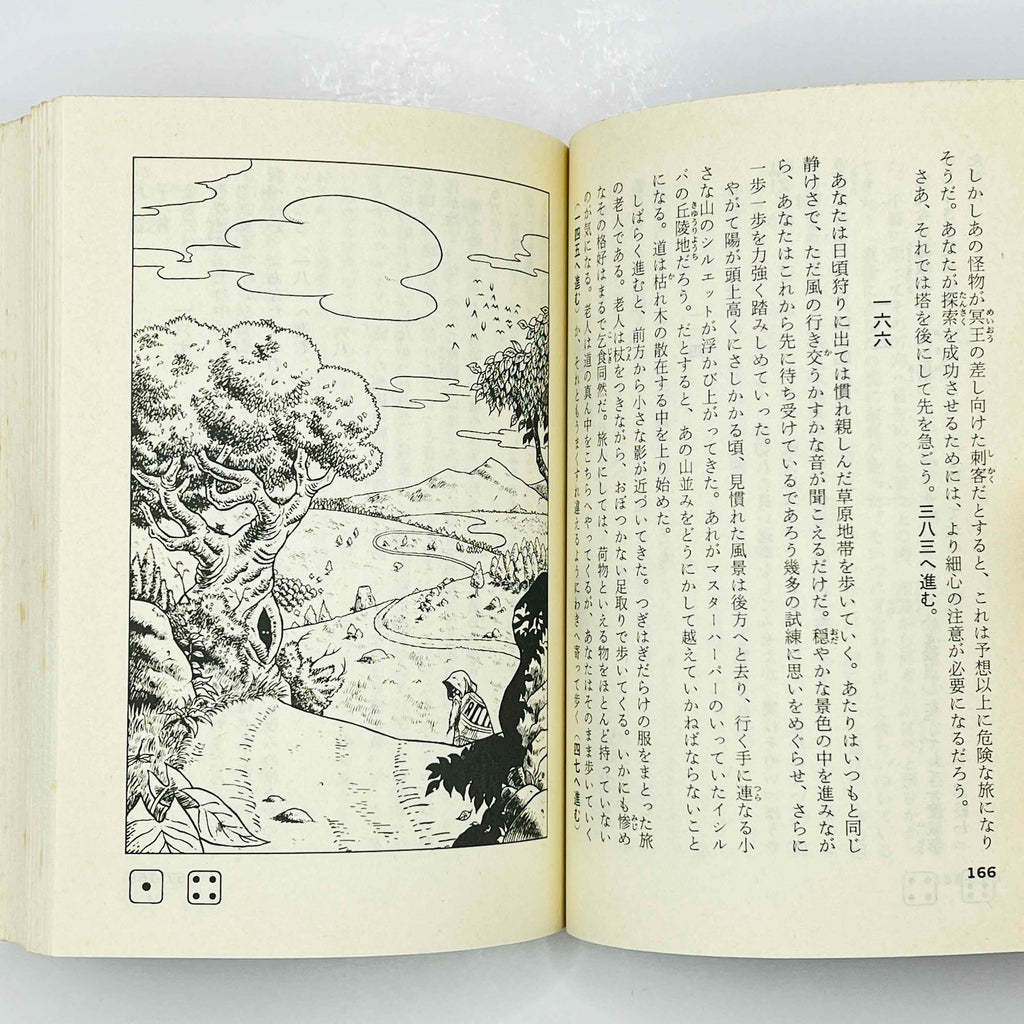 たしかしあの怪物が冥王の差し向けた刺客だとすると、これは予想以上に危険な旅になり
そうだ。あなたが探索を成功させるためには、より細心の注意が必要になるだろう。
さあ、それでは塔を後にして先を急ごう。三八三へ進む。
一六六
あなたは日頃狩りに出ては慣れ親しんだ草原地帯を歩いていく。あたりはいつもと同じ
静けさで、ただ風の行き交うかすかな音が聞こえるだけだ。穏やかな景色の中を進みなが
ら、あなたはこれから先に待ち受けているであろう幾多の試練に思いをめぐらせ、さらに
一歩一歩を力強く踏みしめていった。
やがて陽が頭上高くにさしかかる頃、見慣れた風景は後方へと去り、行く手に連なる小
さな山のシルエットが浮かび上がってきた。あれがマスターハーパーのいっていたイシル
バの丘陵地だろう。だとすると、あの山並みをどうにかして越えていかねばならないこと
になる。道は枯れ木の散在する中を上り始めた。
しばらく進むと、前方から小さな影が近づいてきた。つぎはぎだらけの服をまとった旅
の老人である。老人は杖をつきながら、おぼつかない足取りで歩いてくる。いかにも惨め
なその格好はまるで乞食同然だ。旅人にしては、荷物といえる物をほとんど持っていない
のが気になる。老人は道の真ん中をこちらへやってくるが、あなたはそのまま歩いていく
（一四五へ進む）か、それともうまくすれ違えるようにわきへ寄って歩く（四七へ進む）
166